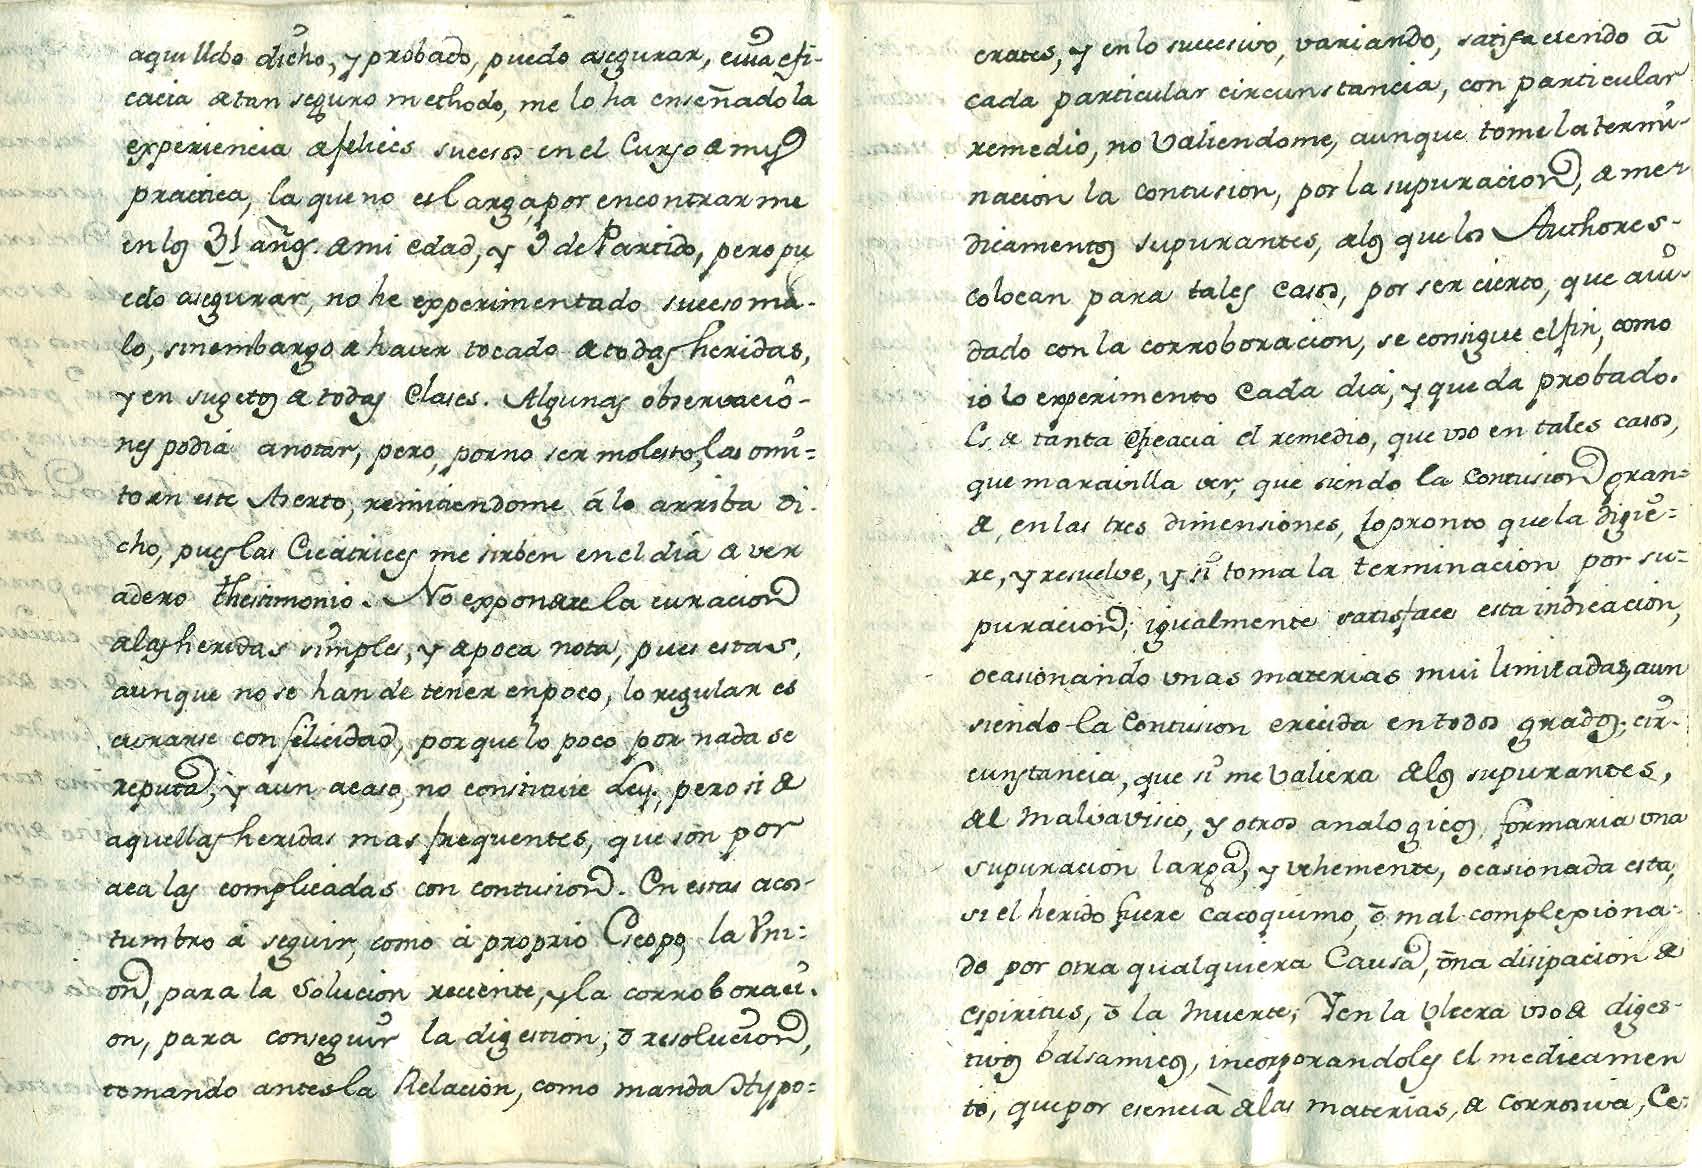 aqui llebo dicho, y probado, puedo asegurar, cuia efi-
cacia de tan seguro methodo, me lo ha enseñado la
experiencia de felices sucesos en el Curso de my
practica, la que no es larga, por encontrarme
en los 31 años. de mi edad, y 9 de Partido, pero pu
edo asegurar, no he experimentado suceso ma-
lo, sinembargo de haver tocado de todas heridas,
y en sugetos de todas Clases. Algunas observacio-
nes podia anotar, pero, por no ser molesto, las omi=
to en este Aserto, remitiendome á lo arriba di-
cho, pues las Cicatrices me sirben en el dia de ver
dadero thestimonio. No expondre la curacion
de las heridas simples, y de poca nota, pues estas,
aunque no se han de tener en poco, lo regular es
curarse con felicidad, porque lo poco por nada se
reputa, y aun acaso, no constituie Ley, pero si de
aquellas heridas mas frequentes, que son por
aca las complicadas con contusion. En estas acos-
tumbro á seguir, como á proprio Escopo, la Vni-
on, para la Solucion reciente, y la corroboraci-
on, para conseguir la digestion, ó resolucion,
tomando antes la Relacion, como manda Hypo=
crates, y en lo succesivo, variando, satisfaciendo á
cada particular circunstancia, con particular
remedio, no Valiendome, aunque tome la termi-
nacion la contusion, por la supuracion, de me-
dicamentos supurantes, de los que los Authores-
colocan para tales casos, por ser cierto, que aiu-
dado con la corroboracion, se consigue el fin, como
io lo experimento Cada dia, y queda probado.
Es de tanta eficacia el remedio, que uso en tales casos,
que maravilla ver, que siendo la Contusion gran=
de, en las tres dimensiones, lo pronto que la digie=
re, y resuelve, y si toma la terminacion por su=
puracion, igualmente satisface esta indicacion,
ocasionando unas materias mui limitadas, aun
siendo la Contusion crecida en todos grados; cir-
cunstancia, que si me Valiera de los supurantes,
del Malvavisco, y otros analogicos, formaria una
supuracion larga, y vehemente, ocasionada esta,
si el herido fuere Cacoquimo, ó mal complexiona=
do por otra qualquiera Causa, una disipacion de
Espiritus, ó la Muerte; Y en la Ulcera uso de diges-
tivos balsamicos, incorporandoles el medicamen
to, que por esencia de las materias, de corrosiva, Ce=